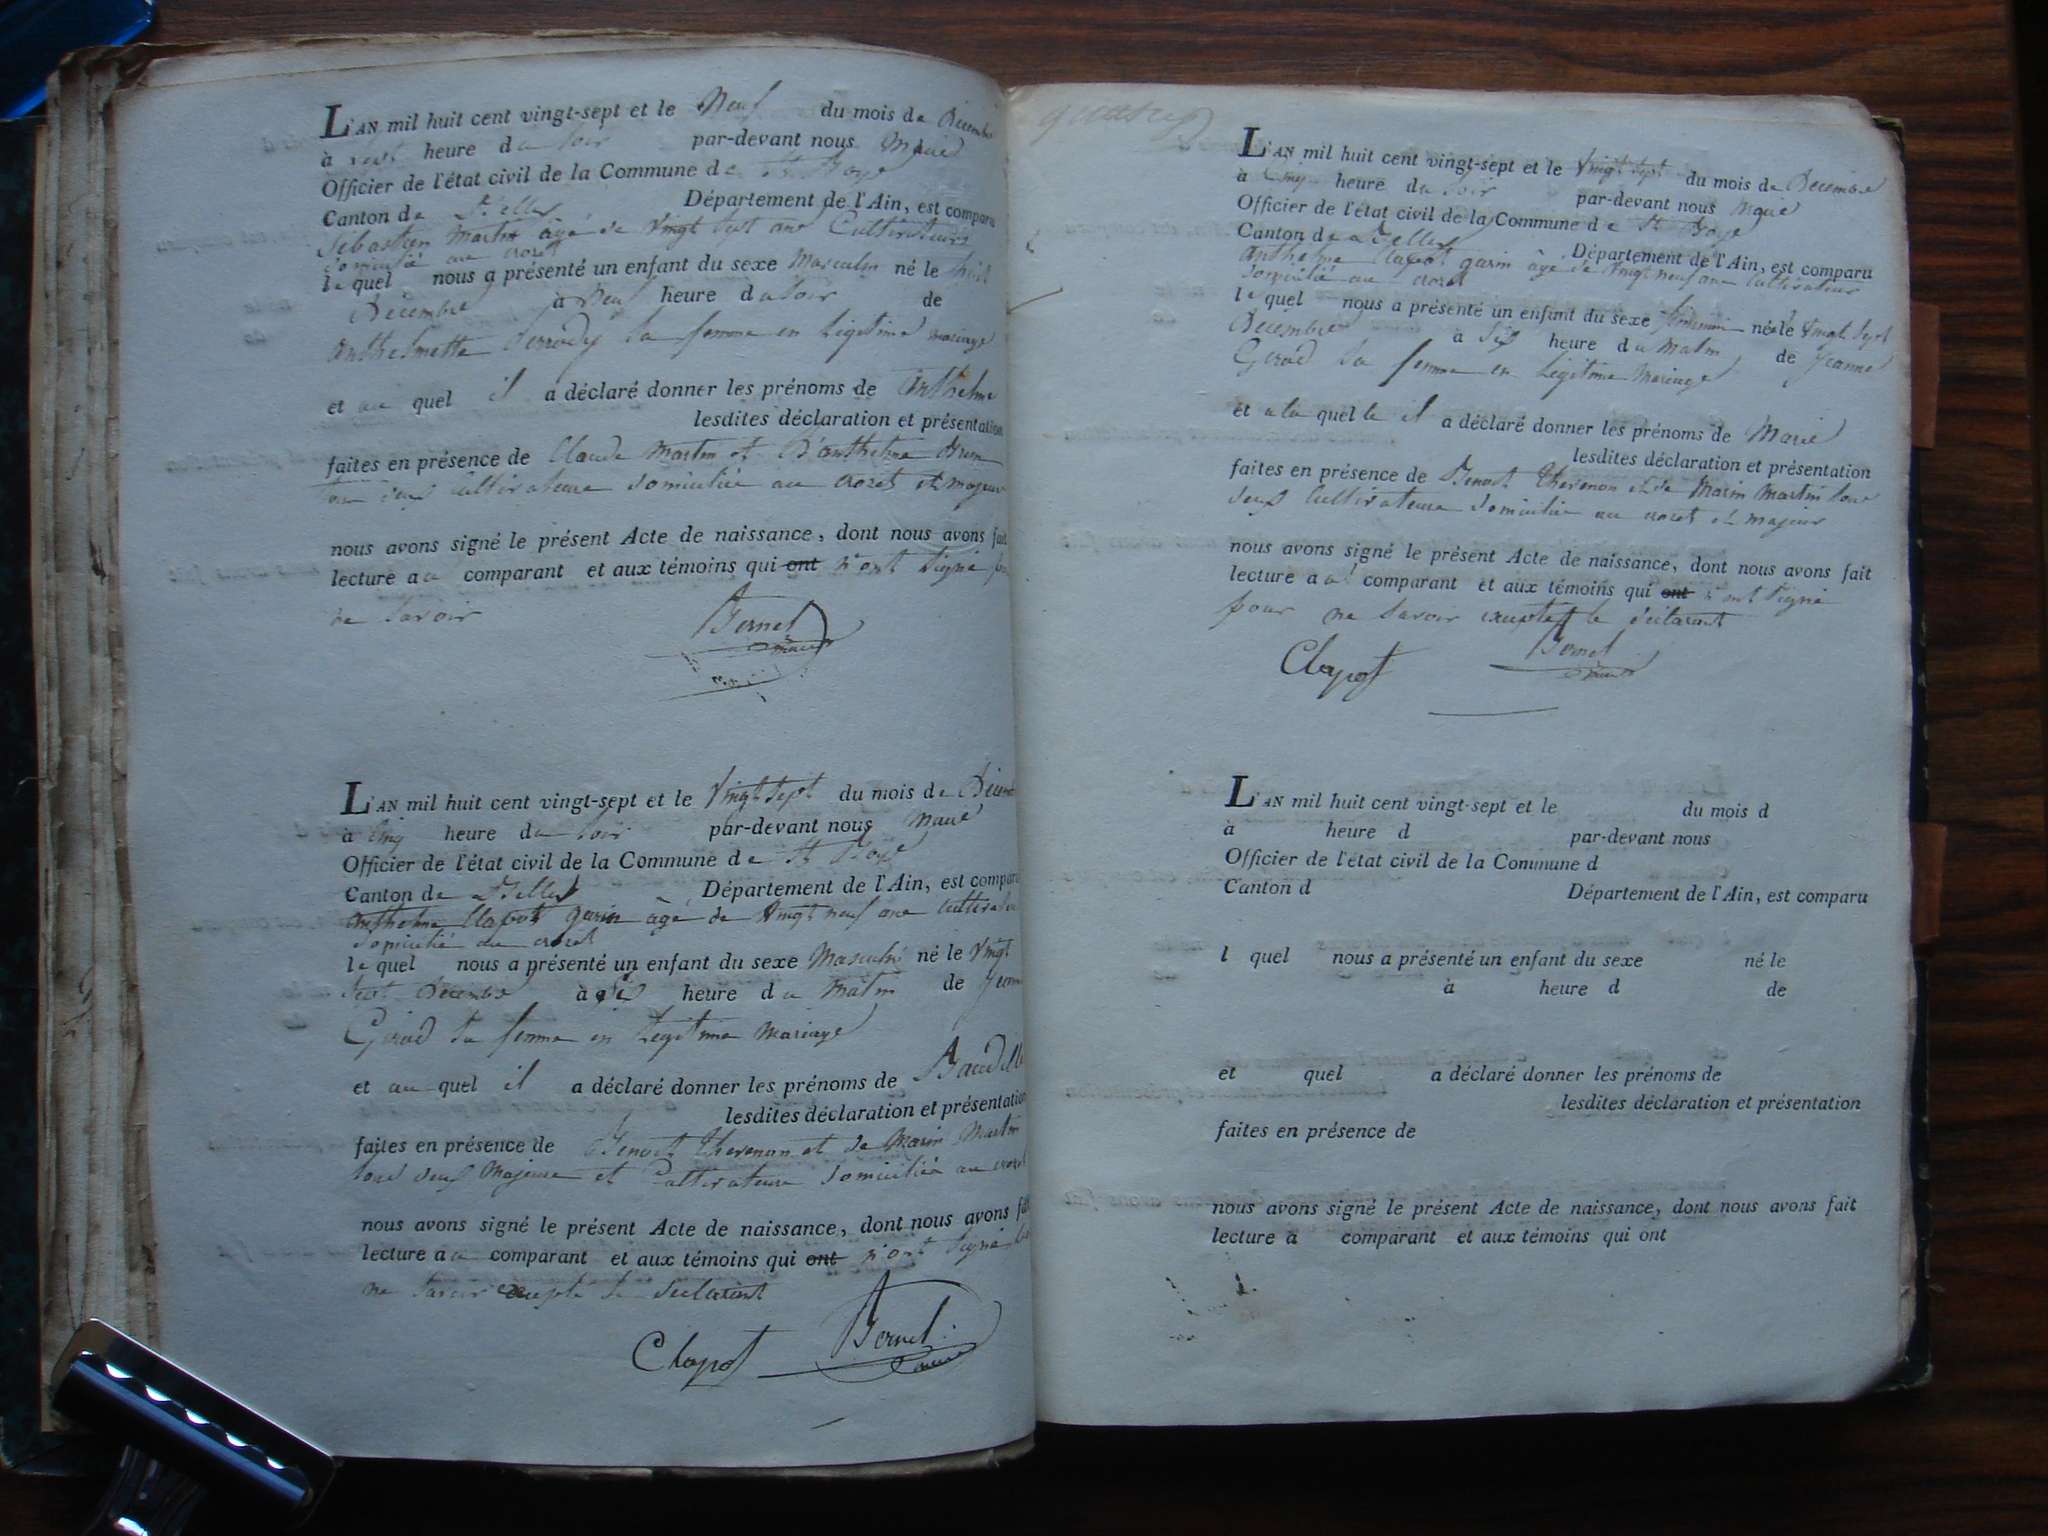 L'AN mil huit cent vingt-sept et le Neuf du mois de Décembre
à sept heure du soir par-devant nous Maire
Officier de l'état civil de la Commune de St Boys
Canton de Belley Département de l'Ain, est comparu
Sebastien Martin âgé de vingt sept ans Cultivateur
domicilié au crozet
lequel nous a présenté un enfant du sexe Masculin né le huit
Décembre à Neuf heure du soir de
Anthelmette sa femme en Légitime mariage
et au quel il a déclaré donner les prénoms de Anthelme
lesdites déclaration et présentation
faites en présence de Claude Martin et D'anthelme
tous deux Cultivateurs domiciliés au crozet et majeurs
nous avons signé le présent Acte de naissance, dont nous avons fait
lecture au comparant et aux témoins qui ont n'ont signé pour
ne savoir
Bernel
maire
L'AN mil huit cent vingt-sept et le Vingt sept du mois de Décembre
à cinq heure du soir par-devant nous Maire
Officier de l'état civil de la Commune de St Boys
Canton de Belley Département de l'Ain, est comparu
anthelme Clapot garin âgé de Vingt neuf ans cultivateur
domicilié au crozet
lequel nous a présenté un enfant du sexe Masculin né le Vingt
sept Décembre à six heure du matin de Jeanne
Girod sa femme en Légitime Mariage
et au quel il a déclaré donner les prénoms de Baudille
lesdites déclaration et présentation
faites en présence de Benoit thevenon et de Marin Martin
tous deux Majeurs et Cultivateurs domiciliés au crozet
nous avons signé le présent Acte de naissance, dont nous avons fait
lecture au comparant et aux témoins qui ont n'ont signé
ne savoir excepté le déclarant
Clapot Bernel
maire
L'AN mil huit cent vingt-sept et le Vingt sept du mois de Décembre
à Cinq heure du soir par-devant nous Maire
Officier de l'état civil de la Commune de St Boys
Canton de Belley Département de l'Ain, est comparu
anthelme Clapot garin âgé de Vingt neuf ans cultivateur
domicilié au crozet
lequel nous a présenté un enfant du sexe féminin née le Vingt sept
Décembre à six heure du Matin de Jeanne
Girod sa femme en Légitime Mariage
et a la quelle il a déclaré donner les prénoms de Marie
lesdites déclaration et présentation
faites en présence de Benoit thevenon et de Marin Martin tous
deux Cultivateurs domiciliés au crozet et majeurs
nous avons signé le présent Acte de naissance, dont nous avons fait
lecture au comparant et aux témoins qui ont n'ont signé
pour ne savoir excepté le déclarant
Clapot Bernel
maire
L'AN mil huit cent vingt-sept et le du mois d
à heure d par-devant nous
Officier de l'état civil de la Commune d
Canton d Département de l'Ain, est comparu
l quel nous a présenté un enfant du sexe né le
à heure d de
et quel a déclaré donner les prénoms de
lesdites déclaration et présentation
faites en présence de
nous avons signé le présent Acte de naissance, dont nous avons fait
lecture à comparant et aux témoins qui ont